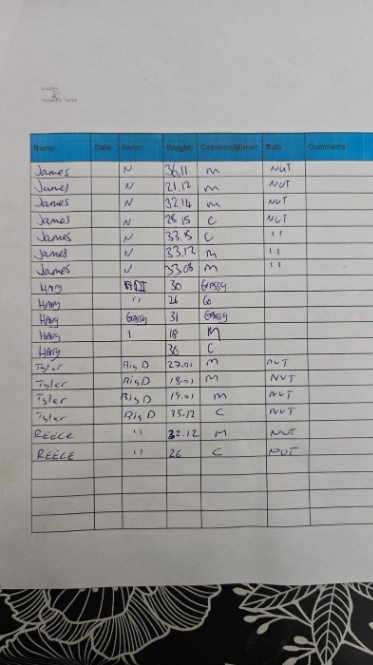 Name: Date: Swim: Weight: Common/Mirror: Bait: Comments:
James N 36.11 M NUT
James N 21.12 M NUT
James N 32.14 M NUT
James N 28.15 C NUT
James N 33.15 C "
James N 33.12 M "
James N 33.08 M "
Harry 30 Grassy
Harry " 26 Co
Harry Grassy 31 Grassy
Harry 18 M
Harry 38 C
Tyler Big D 27.01 M NUT
Tyler Big D 18.01 M NUT
Tyler Big D 19.01 M NUT
Tyler Big D 35.12 C NUT
REECE " 32.12 M NUT
REECE " 26 C NUT